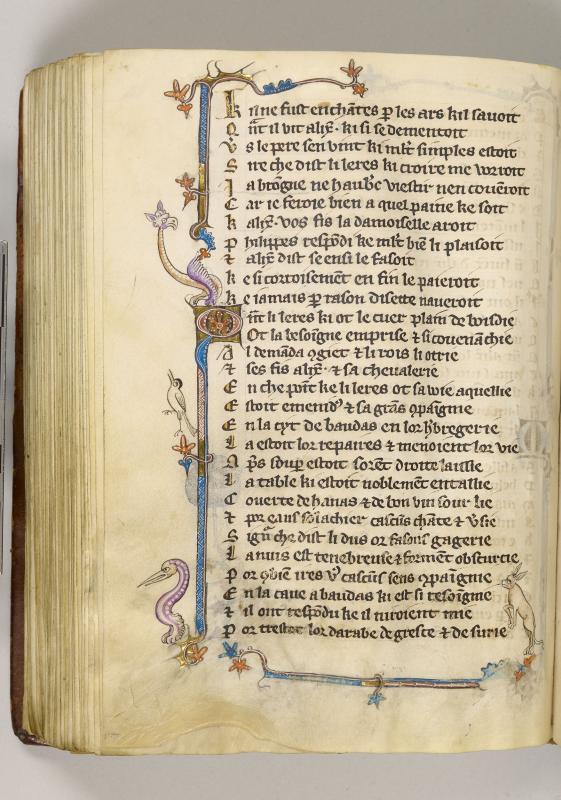 K il ne fust enchātes p les ars kil savoit
Q n̄t il vit alix̄. ki si se dementoit
V s le pere sen vint ki ml̄t simples estoit
S ire che dist li leres ki croire me voroit
J a brōgne ne haub̄c viestir nen cōuēroit
C ar ie feroie bien a quel paine ke soit
K alix̄. vos fis la damoiselle aroit
P hilippes respōdi ke ml̄t biē li plaisoit
⁊ alix̄ dist se ensi le fasoit
K e si cortoisemēt en fin le paieroit
K e iamais p raison disette naveroit
Q n̄t li leres ki ot le cuer plain de boisdie
Ot la besoīgne emprise ⁊ si couenāchie
A l demāda ꝯgiet ⁊ li rois li otrie
⁊ ses fis alix̄. ⁊ sa chevalerie
E n che poīt ke li leres ot sa voie aquellie
E stoit emenid⁹ ⁊ sa grās ꝯpaīgnie
E n la cyt de baudas en lor h̄bregerie
L a estoit lor repaires ⁊ menoient lor vie
A p̄s soup estoit sorēt droite laisse
L a table ki estoit noblement entallie
C ouverte de hanas ⁊ de bon vin sour lie
⁊ por eaus solachier cascūs chāte ⁊ v̄sie
S ign̄ che dist li dus or fasons gagerie
L a nuis est tenebreuse ⁊ formēt obscurcie
P or ꝯbiē ires v̄ cascūs sens ꝯpaīgnie
E n la cave a baudas ki est si resoīgnie
⁊ il ont respōdu ke il niroient mie
P or trestot lor darabe de gresce ⁊ de surie